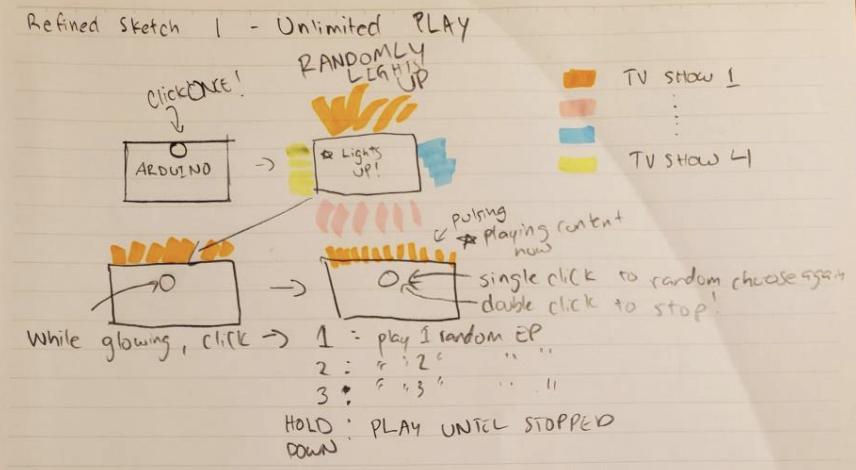 Refined Sketch 1 - Unlimited PLAY
RANDOMLY
LIGHTS
UP
Click ONCE!
ARDUINO
☆ Lights
UP!
TV SHOW 1
TV SHOW 4
pulsing
☆ playing content
now
single click to random choose again
double click to stop!
While glowing, click → 1 : play 1 random EP
2 : " " 2 " " "
3 : " " 3 " " "
HOLD : PLAY UNTIL STOPPED
DOWN